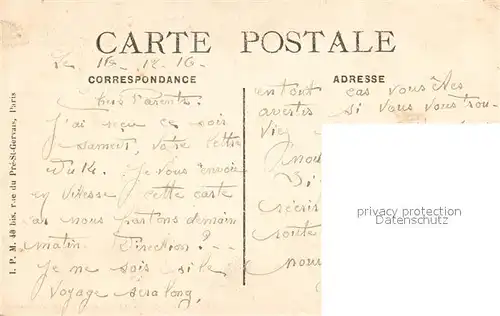 CARTE POSTALE
Le 16-12-16-
CORRESPONDANCE
Chers Parents.
J'ai reçu ce soir
samedi, votre lettre
du 14. Je vous envoie
en vitesse cette carte
car nous partons demain
matin. Direction? - -
Je ne sais si le
voyage sera long,
ADRESSE
en tout cas vous êtes
avertis si vous vous trou-
viez
nous
écris
route
nous
privacy protection
Datenschutz
I. P. M. 40 bis, rue du Pré-St-Gervais, Paris